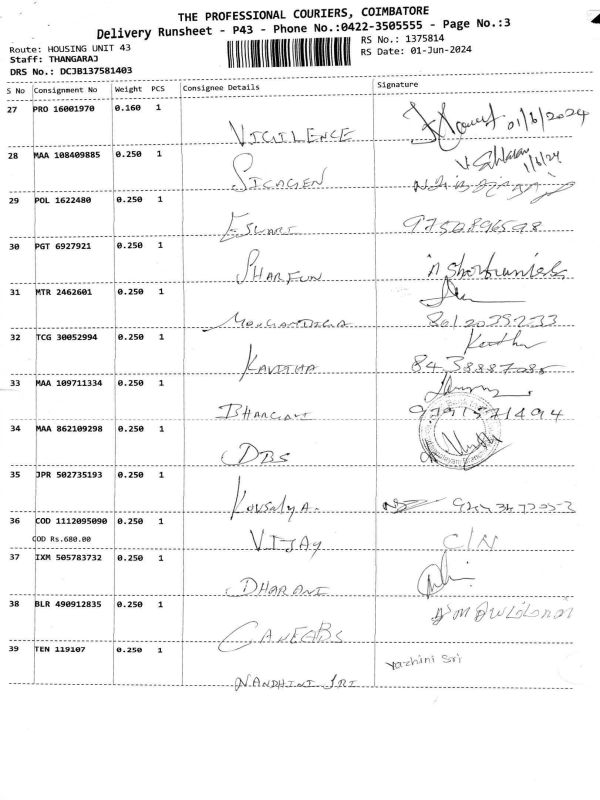 THE PROFESSIONAL COURIERS, COIMBATORE
Delivery Runsheet - P43 - Phone No.:0422-3505555 - Page No.:3
Route: HOUSING UNIT 43
RS No.: 1375814
Staff: THANGARAJ
RS Date: 01-Jun-2024
DRS No.: DCJB137581403
S No Consignment No Weight PCS Consignee Details Signature
27 PRO 16001970 0.160 1
VIGILENCE 01/6/2024
28 MAA 108409885 0.250 1
1/6/24
SICAGEN
29 POL 1622480 0.250 1
ESWARI
30 PGT 6927921 0.250 1
SHARFUN
31 MTR 2462601 0.250 1
32 TCG 30052994 0.250 1
KAVITHA
33 MAA 109711334 0.250 1
34 MAA 862109298 0.250 1
DBS
35 JPR 502735193 0.250 1
KOUSALYA.
36 COD 1112095090 0.250 1
COD Rs.680.00
VIJAY C/N
37 IXM 505783732 0.250 1
DHARANI
38 BLR 490912835 0.250 1
39 TEN 119107 0.250 1
Yazhini Sri
NANDHINI SRI